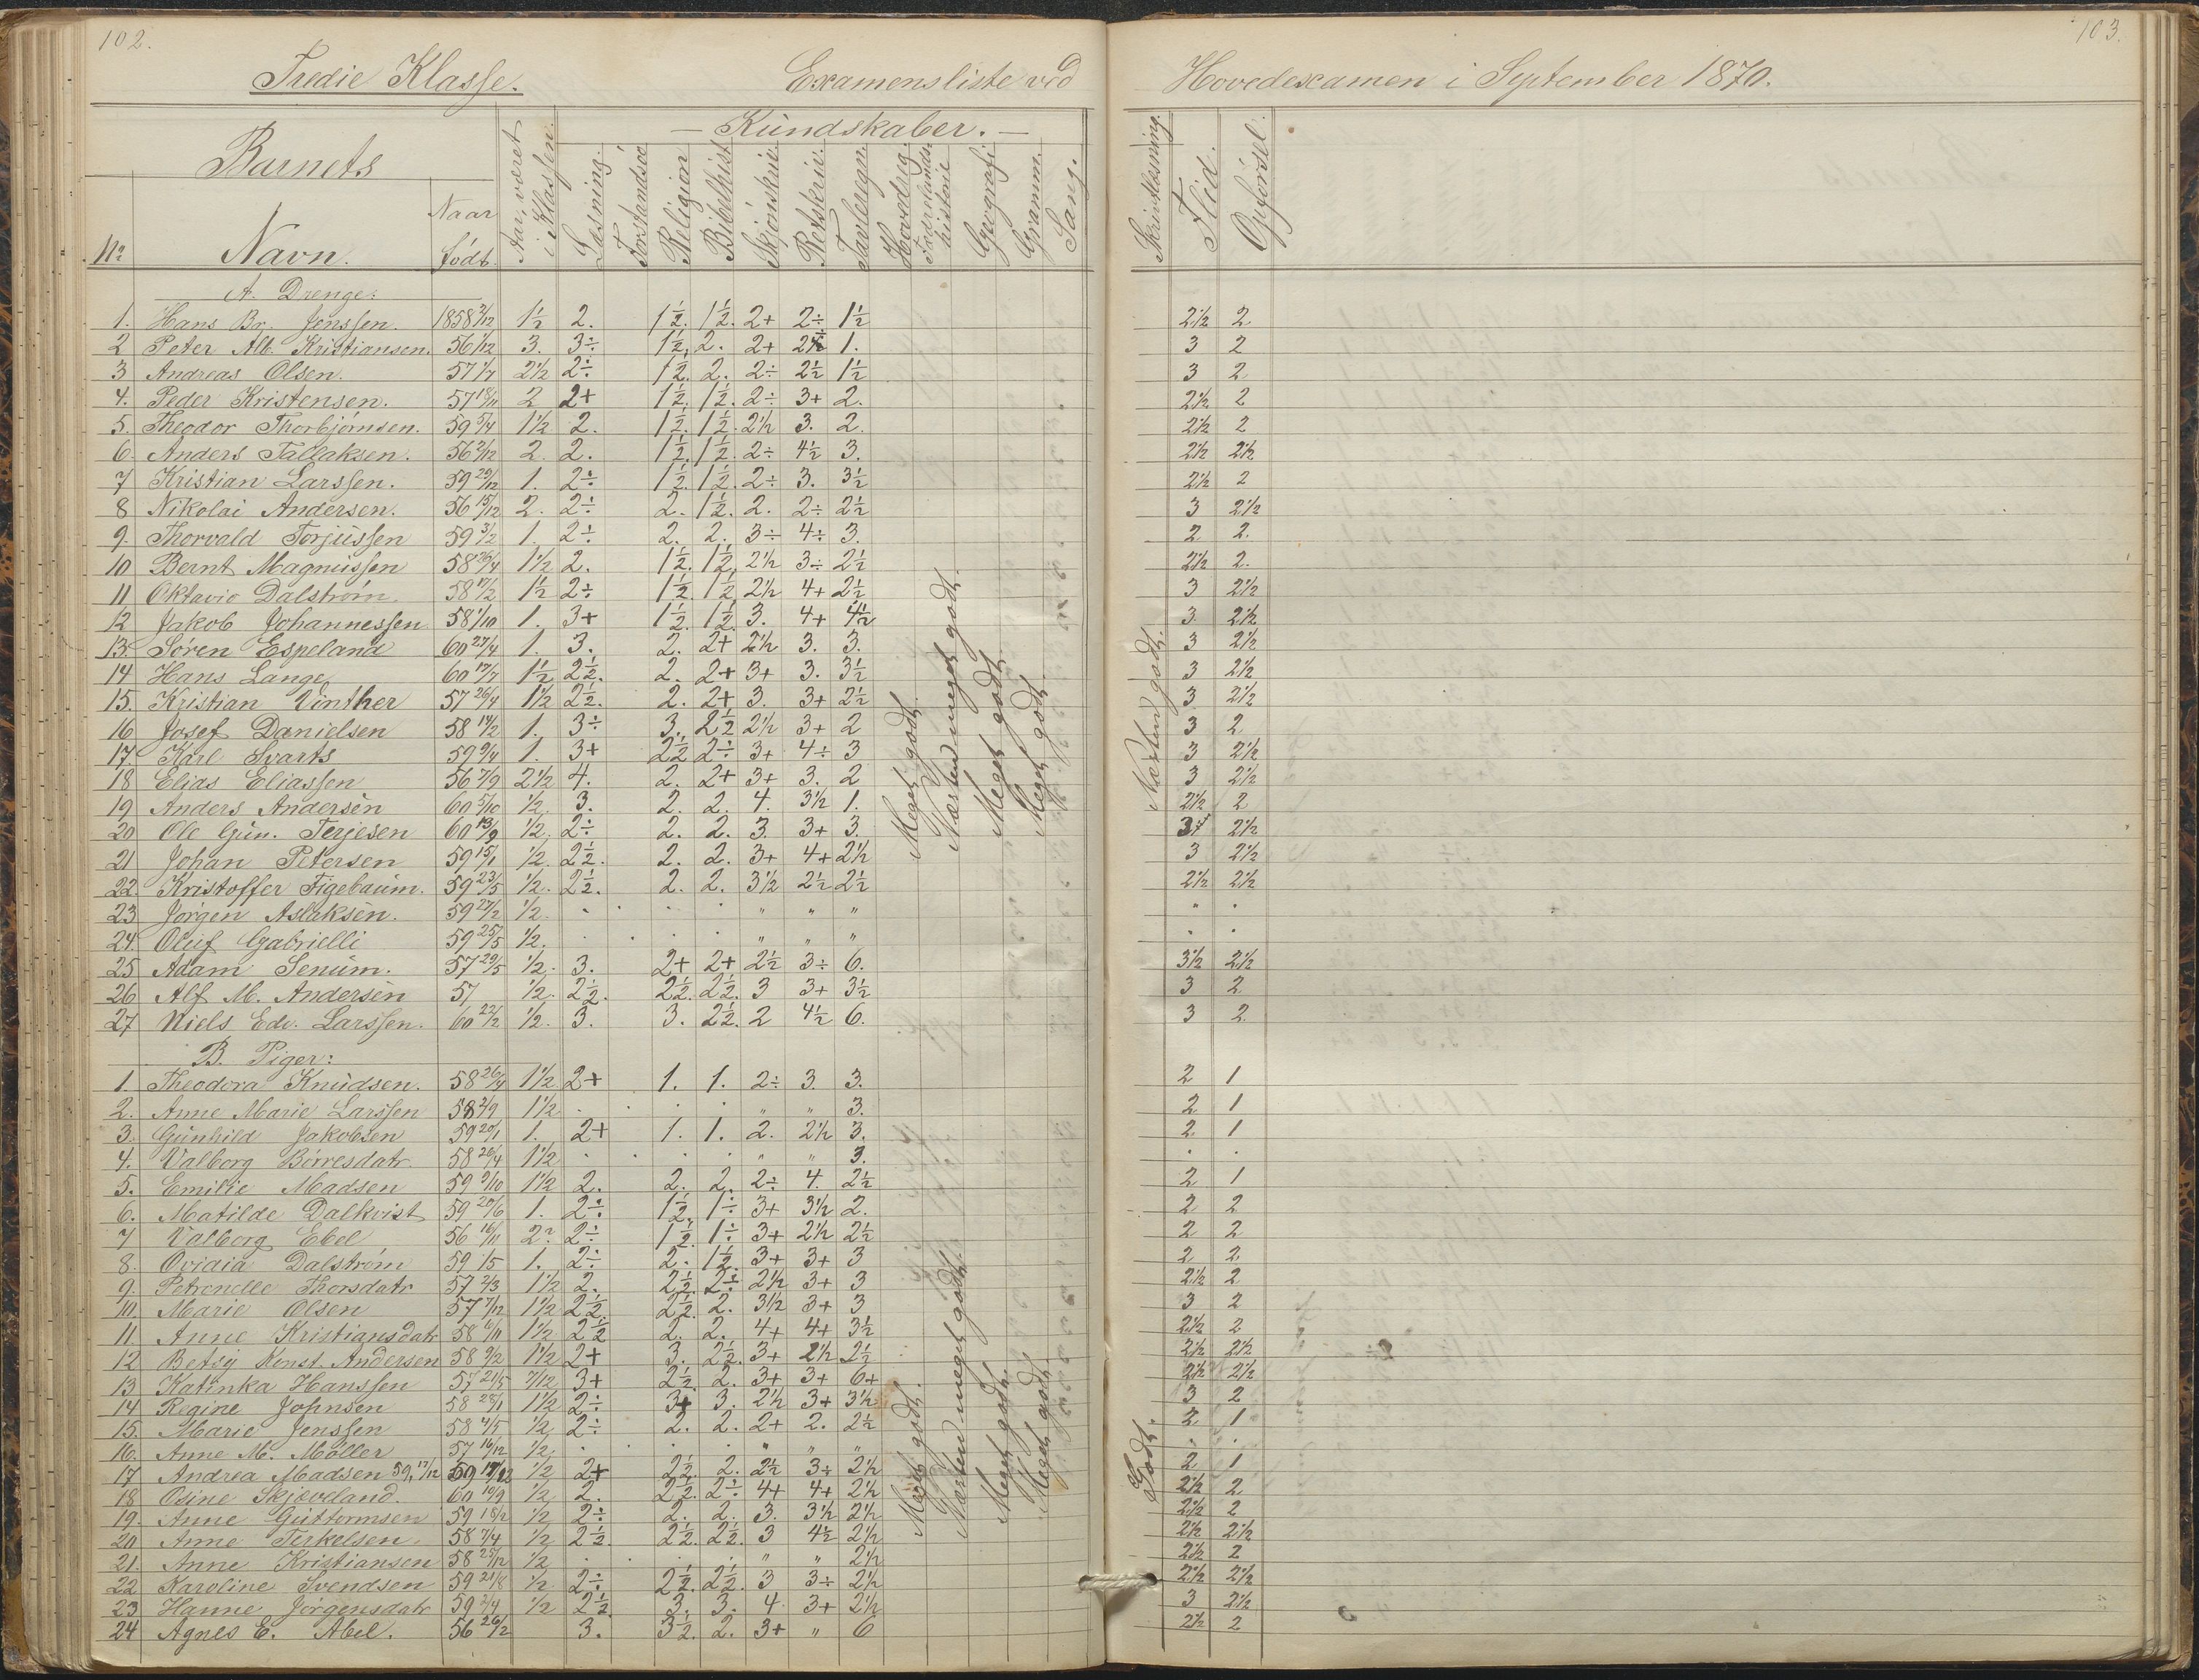 102.
103.
Tredie Klasse. Examensliste ved Hovedexamen i September 1870.
Barnets
Aar, været i Klassen.
— Kundskaber. —
No Navn. Naar Født.
Læsning. Forstandsøv Religion Bibelhist Skjönskriv. Retskriv. Tavleregn. Hovedreg. Fædrelandshistorie Geografi Gramm. Sang.
Skriftlæsning. Flid. Opførsel.
A. Drenge:
1. Hans Br. Jenssen. 1858 2/12 1½ 2. 1½. 1½. 2+ 2÷ 1½ 2½ 2
2 Peter Alb. Kristiansen. 56 1/12 3. 3÷ 1½. 2. 2+ 2½ 1. 3 2
3 Andreas Olsen. 57 1/7 2½ 2÷ 1½. 2. 2÷ 2½ 1½ 3 2
4. Peder Kristensen. 57 18/11 2 2+ 1½. 1½. 2÷ 3+ 2. 2½ 2
5. Theodor Thorbjørnsen. 59 5/4 1½ 2. 1½. 1½. 2½ 3. 2. 2½ 2
6. Anders Tallaksen. 56 2/12 2. 2. 1½. 1½. 2÷ 4½ 3. 2½ 2½
7 Kristian Larssen. 59 29/12 1. 2÷ 1½. 1½. 2÷ 3. 3½ 2½ 2
8 Nikolai Andersen. 56 15/12 2. 2÷ 2. 1½. 2. 2÷ 2½ 3 2½
9. Thorvald Torjussen 59 3/2 1. 2÷ 2. 2. 3÷ 4÷ 3. 2 2.
10 Bernt Magnussen 58 26/4 1½ 2. 1½. 1½. 2½ 3÷ 2½ 2½ 2.
11 Oktavio Dalstrøm 58 17/2 1½ 2÷ 1½. 1½ 2½ 4+ 2½ 3 2½
12 Jakob Johannessen 58 1/10 1. 3+ 1½. 1½. 3. 4+ 4½ 3. 2½
13. Søren Espeland 60 27/4 1. 3. 2. 2+ 2½ 3. 3. 3 2½
14 Hans Lange 60 17/7 1½ 2½. 2. 2+ 3+ 3. 3½ 3 2½
15. Kristian Vinther 57 26/4 1½ 2½. 2. 2+ 3. 3+ 2½ 3 2½
16 Josef Danielsen 58 14/2 1. 3÷ 3. 2½ 2½ 3+ 2 3 2
17. Karl Svarts 59 9/4 1. 3+ 2½ 2÷ 3+ 4÷ 3 3 2½
18 Elias Eliassen 56 7/9 2½ 4. 2. 2+ 3+ 3. 2 3 2½
19 Anders Andersen 60 5/10 ½. 3. 2. 2. 4. 3½ 1. 2½ 2
20 Ole Gun. Terjesen 60 13/9 ½. 2÷ 2. 2. 3. 3+ 3. 3+ 2½
21 Johan Petersen 59 15/1 ½. 2½. 2. 2. 3+ 4+ 2½ 3 2½
22. Kristoffer Figebaum. 59 23/5 ½. 2½. 2. 2. 3½ 2½ 2½ 2½ 2½
23 Jørgen Aslaksen. 59 27/2 ½. · · · · „ „ „ „ ·
24. Oluf Gabrielli 59 25/5 ½. · · · · „ „ „ · ·
25 Adam Senum. 57 29/5 ½. 3. 2+ 2+ 2½ 3÷ 6. 3½ 2½
26 Alf M. Andersen 57 ½. 2½. 2½. 2½. 3 3+ 3½ 3 2
27 Niels Edv. Larssen. 60 22/2 ½. 3. 3. 2½. 2 4½ 6. 3 2
Meget godt.
Næsten meget godt.
Meget godt.
Meget godt.
Næsten godt.
B. Piger:
1. Theodora Knudsen. 58 26/4 1½ 2+ 1. 1. 2÷ 3. 3. 2 1
2. Anne Marie Larssen 58 2/9 1½ · · · · „ „ 3. 2 1
3. Gunhild Jakobsen 59 20/1 1. 2+ 1. 1. 2. 2½ 3. 2 1
4. Valborg Børresdatr. 58 26/4 1½ · · · · „ „ 3. · ·
5. Emilie Madsen 59 9/10 1½ 2. 2. 2. 2÷ 4. 2½ 2 1
6. Matilde Dalkvist 59 20/6 1. 2÷ 1½ 1÷ 3+ 3½ 2. 2 2
7 Valborg Ebel 56 16/11 2? 2÷ 1½. 1÷ 3+ 2½ 2½ 2 2
8. Ovidia Dalstrøm 59 1/5 1. 2÷ 2. 1½. 3+ 3+ 3 2 2
9. Petronelle Thorsdatr 57 2/3 1½ 2. 2½. 2÷ 2½ 3+ 3 2½ 2
10. Marie Olsen 57 7/12 1½ 2½ 2½. 2. 3½ 3+ 3 3 2
11. Anne Kristiansdatr 58 16/11 1½ 2½ 2. 2. 4+ 4+ 3½ 2½ 2
12 Betsy Konst. Andersen 58 9/2 1½ 2+ 3. 2½. 3+ 2½ 2½ 2½ 2½
13 Katinka Hanssen 57 21/5 7/12 3+ 2½. 2. 3+ 3+ 6+ 2½ 2½
14 Regine Johnsen 58 28/1 1½ 2÷ 3+ 3. 2½ 3+ 3½ 3 2
15. Marie Jenssen 58 4/5 ½ 2÷ 2. 2. 2+ 2. 2½ 2 1
16. Anne M. Møller 57 16/12 ½ · · · · „ „ „ · ·
17 Andrea Madsen 59, 17/12 ½ 2+ 2½. 2. 2½ 3÷ 2½ 2 1
18 Osine Skjæveland. 60 10/9 ½ 2. 2½. 2÷ 4+ 4+ 2½ 2½ 2
19. Anne Guttormsen 59 18/2 ½ 2÷ 2. 2. 3. 3½ 2½ 2½ 2
20 Anne Terkelsen. 58 7/4 ½ 2½. 2½. 2½. 3 4½ 2½ 2½ 2½
21. Anne Kristiansen 58 25/12 ½ · · · · „ „ 2½ 2½ 2
22 Karoline Svendsen 59 21/8 ½ 2÷ 2½. 2½. 3 3÷ 2½ 2½ 2½
23 Hanne Jørgensdatr 59 2/4 ½ 2½ 3. 3. 4. 3+ 2½ 3 2½
24 Agnes E. Abel. 56 26/2 3. 3½. 2. 3+ „ 6 2½ 2
Meget godt.
Næsten meget godt.
Meget godt.
Meget godt.
Godt.